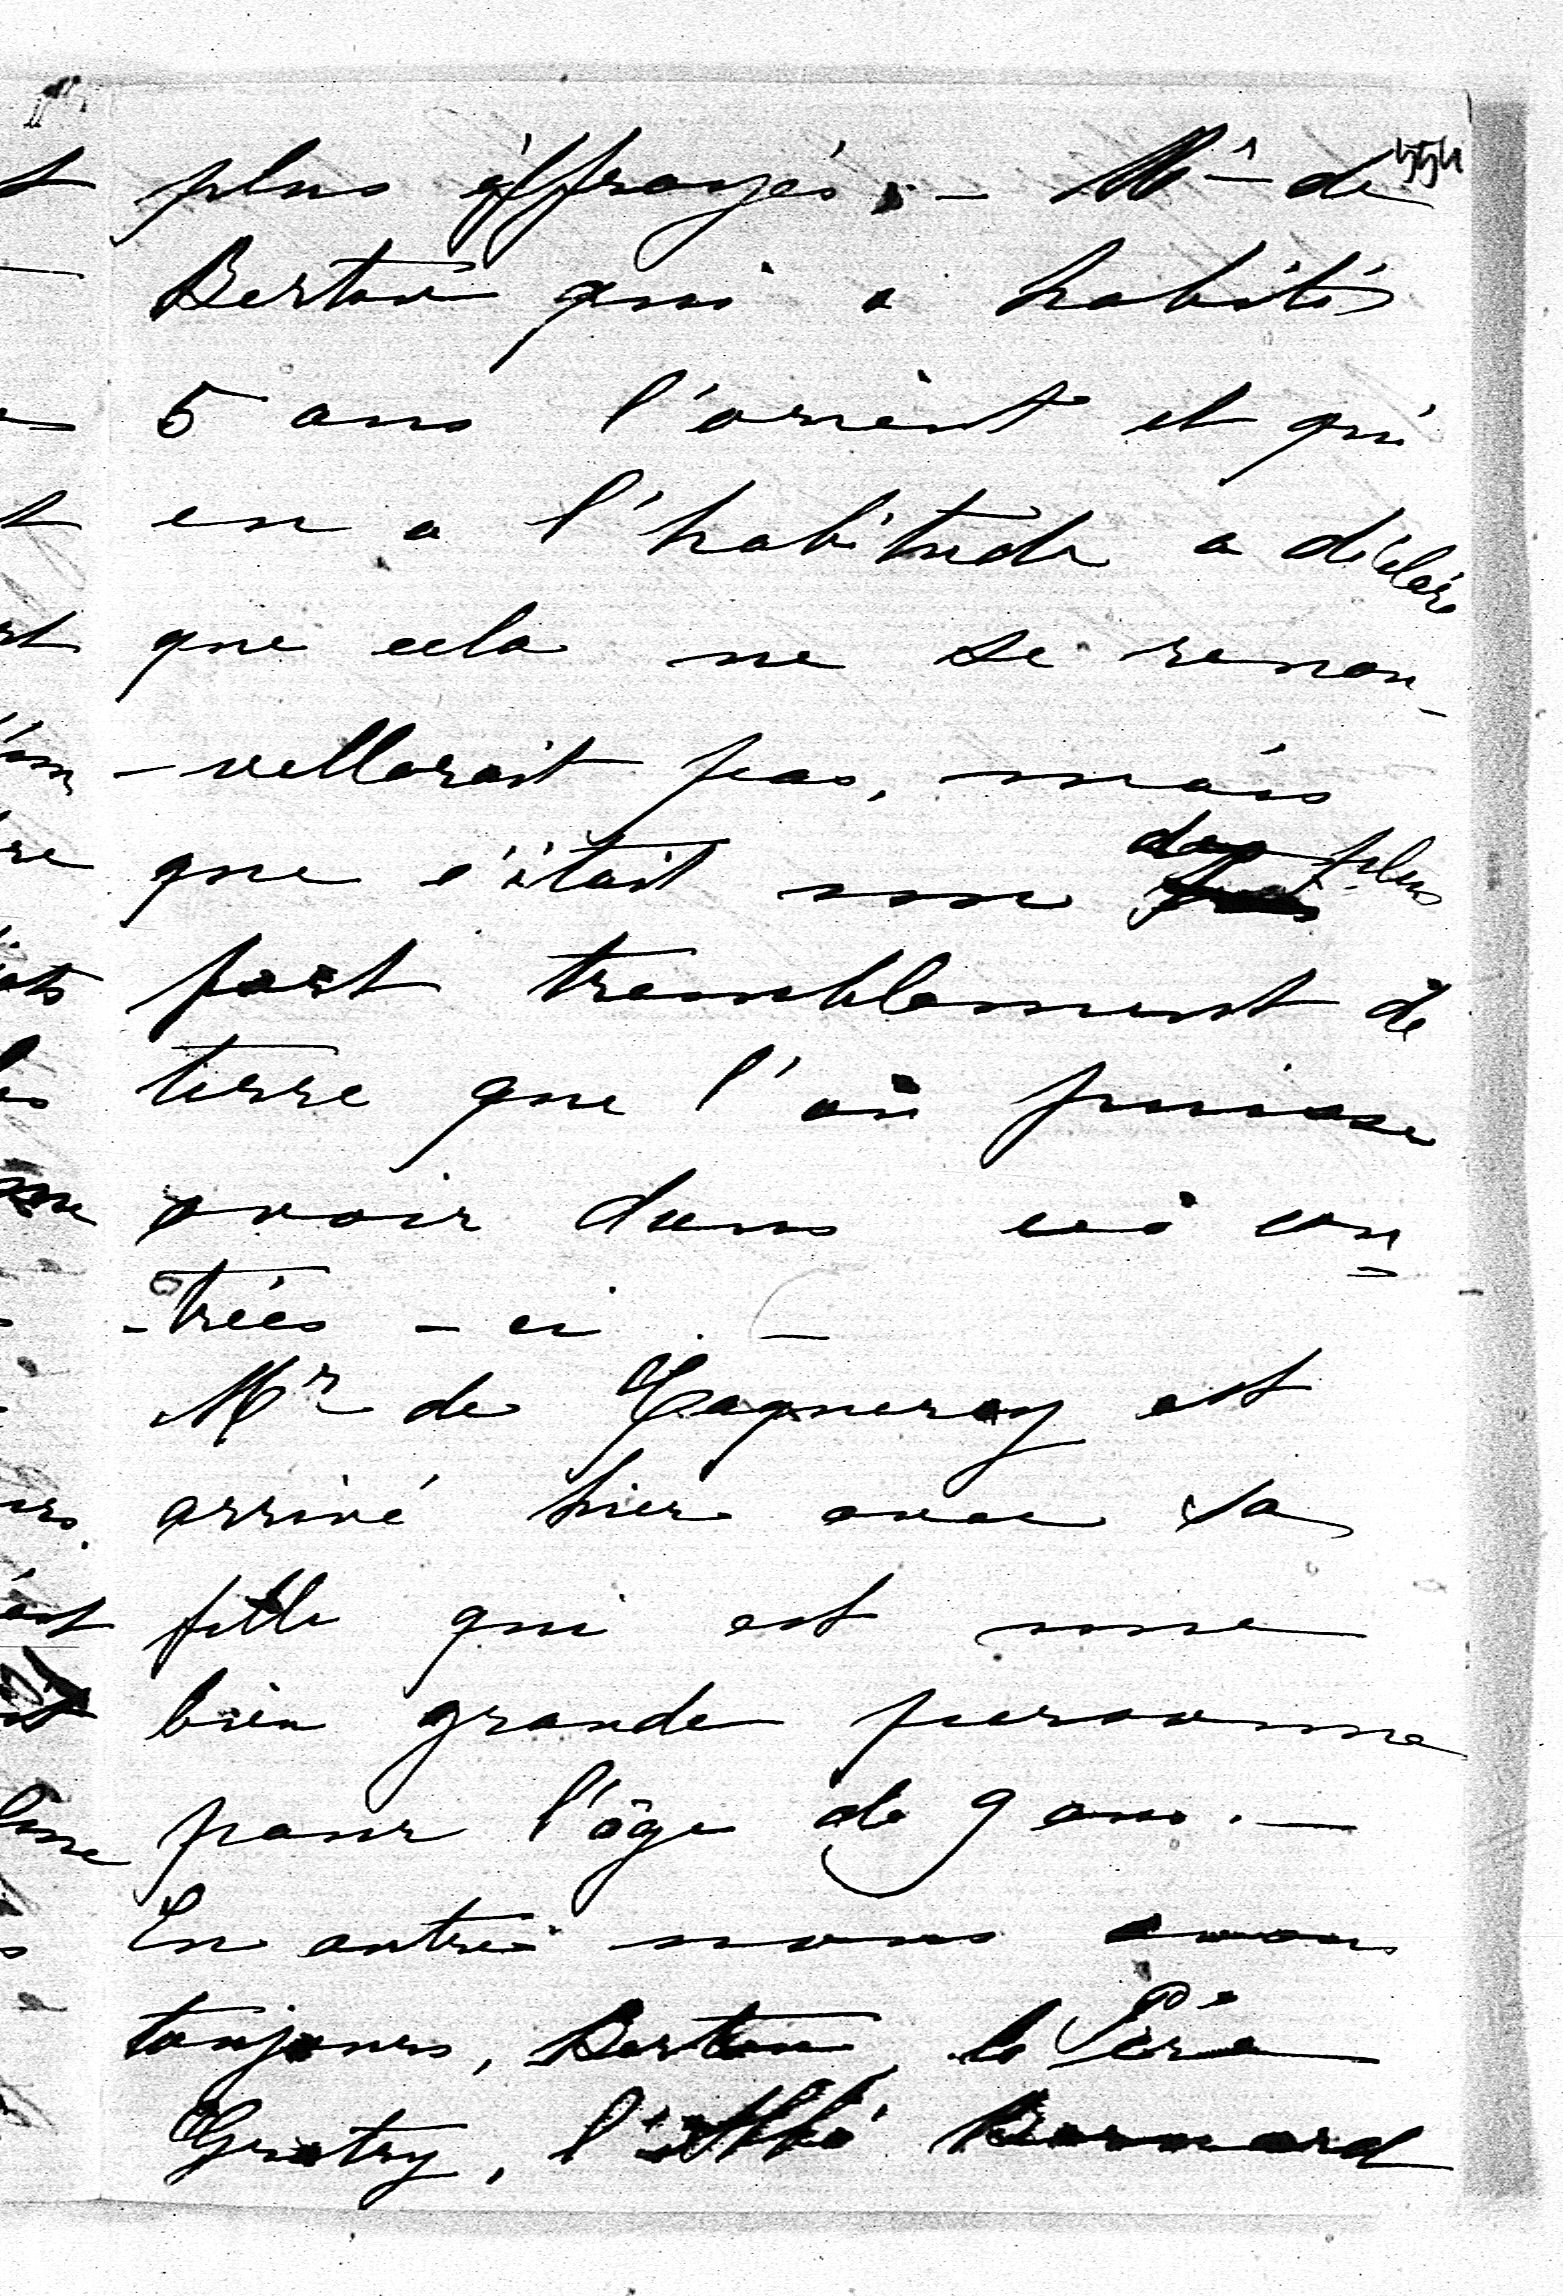 554
plus éffrayés. – Mr de
Bertou qui a habités
5 ans l'orient et qui
en a l'habitude a déclaré
que cela ne se renou-
-vellerait pas, mais
que c'était une des plus
fort tremblement de
terre que l'on puisse
avoir dans ces con=
-trées-ci. –
Mr de est
arrivé hier avec sa
fille qui est une
bien grande personne
pour l'âge de 9 ans. –
En outre nous avons
toujours, Bertou, le Père
Gratry, l'abbé Bernard